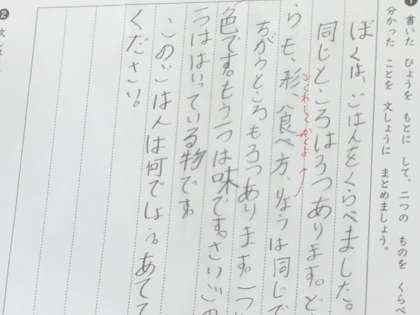 ❶ 書いた ひょうを もとに して、二つの ものを くらべ
分かった ことを 文しょうに まとめましょう。
ぼくは、ごはんをくらべました。
同じところは3つあります。ど
らも、形、食べ方、りょうは同じで
ちがうところも3つあります。一つ
色です。もう一つは味です。さいごの
つははいっている物です。
このごはんは何でしょう。あてて
ください。
❷